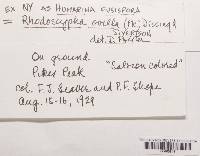 Ex NY AS HUMARINA FUSISPORA
= Rhodoscypha ovilla (Pk.) Dissing &
SIVERTSEN
det. D. Pfister
On ground "Salmon colored"
Pikes Peak
col. F.J. Seaver and P.F. Shope
Aug. 15-16, 1929